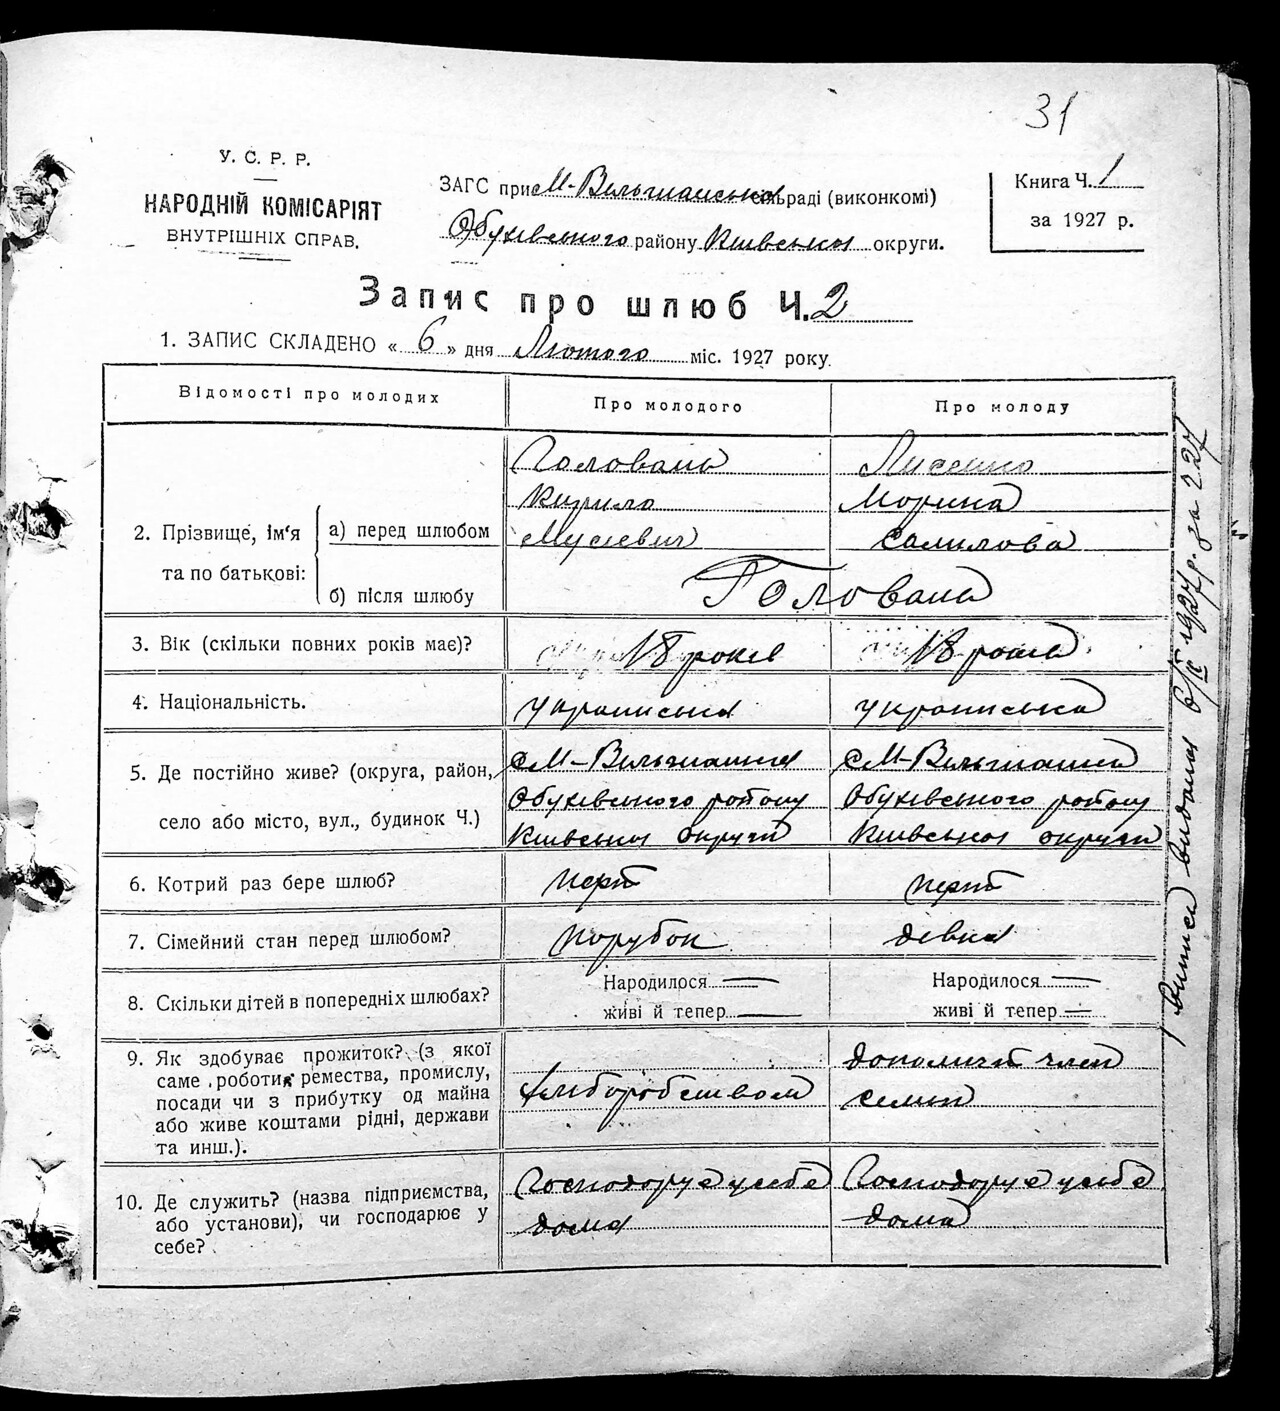 31
У. С. Р. Р.
НАРОДНІЙ КОМІСАРІЯТ
ВНУТРІШНІХ СПРАВ.
ЗАГС при М-Вільшанській сільраді (виконкомі)
Обухівського району Київської округи.
Книга Ч. 1
за 1927 р.
Запис про шлюб Ч. 2
1. ЗАПИС СКЛАДЕНО « 6 » дня Лютого міс. 1927 року.
Відомості про молодих
Про молодого
Про молоду
2. Прізвище, ім‘я та по батькові:
а) перед шлюбом
Головань
Кирило
Мусієвич
Лисенко
Морина
Самилова
б) після шлюбу
Голована
3. Вік (скільки повних років має)?
18 років
18 рокив
4. Національність.
українська
українська
5. Де постійно живе? (округа, район,
село або місто, вул., будинок Ч.)
с М-Вільшанка
Обухівського району
Київської округи
с М-Вільшанка
Обухівського району
Київської округи
6. Котрий раз бере шлюб?
перший
перший
7. Сімейний стан перед шлюбом?
парубок
дівка
8. Скільки дітей в попередніх шлюбах?
Народилося —
живі й тепер —
Народилося —
живі й тепер —
9. Як здобуває прожиток? (з якої
саме роботи, ремества, промислу,
посади чи з прибутку од майна
або живе коштами рідні, держави
та инш.).
хліборобством
допоміжний член
семии
10. Де служить? (назва підприємства,
або установи), чи господарює у
себе?
Господорує у себе
дома
Господорує у себе
дома
Виписа видана 6/II 1927 р. за 227